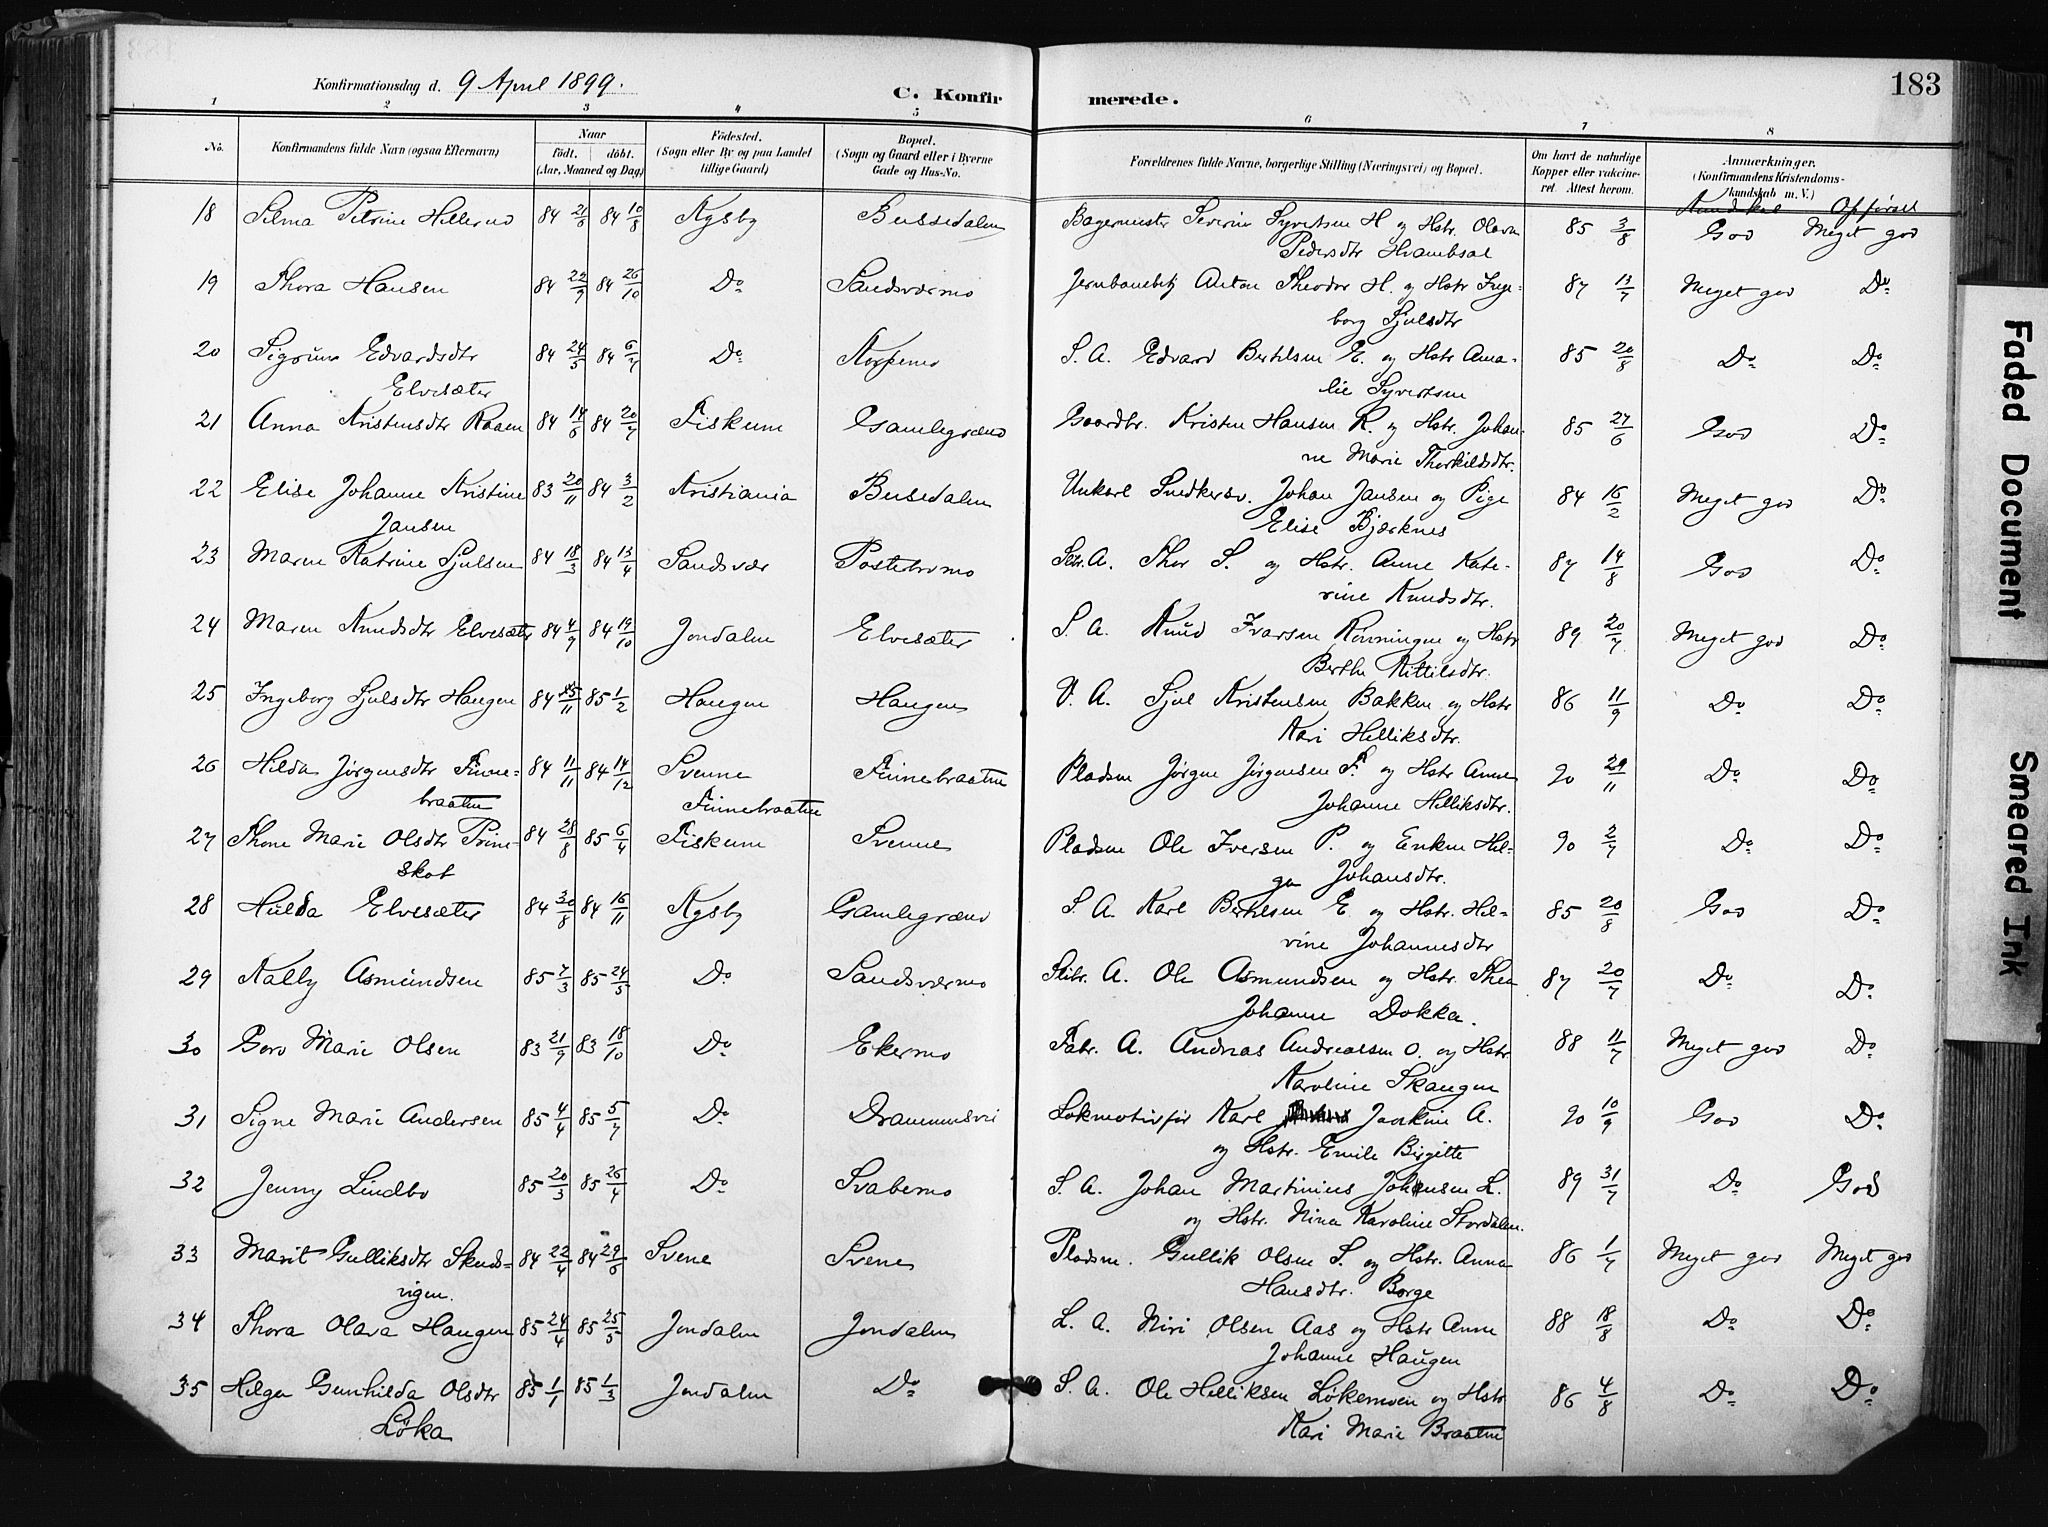 183
Konfirmationsdag d. 9 April 1899.
C. Konfirmerede.
1 2 3 4 5 6 7 8
No. Konfirmandens fulde Navn (ogsaa Efternavn) Naar født. døbt. (Aar, Maaned og Dag) Fødested. (Sogn eller By og paa Landet tillige Gaard) Bopæl. (Sogn og Gaard eller i Byerne Gade og Hus-No. Forældrenes fulde Navne, borgerlige Stilling (Næringsvei) og Bopæl. Om havt de naturlige Kopper eller vaccineret. Attest herom. Anmærkninger. (Konfirmandens Kristendomskundskab m. V.)
Kundskab Opførsel
18 Selma Petrine Hellerud 84 21/6 84 10/8 Nysby Bussedalen Bagermester Severin Syvertsen H og Hstr. Olava 85 3/8 God Meget god
Pedersdtr
19 Thora Hansen 84 22/9 84 26/10 Do Sandsværmo Jernbanebtj Anton Theodor H. og Hstr Inge- 87 13/7 Meget god Do
borg Sjulsdtr
20 Sigrun Edvardsdtr 84 24/5 84 6/7 Do S. A. Edvard Bertelsen E. og Hstr Ama- 85 20/8 Do Do
Elvesæter lie Syvertsen
21 Anna Kristensdtr Raaen 84 14/6 84 20/7 Fiskum Gamlegrænd Gaardbr. Kristen Hansen R. og Hstr. Johan- 85 27/6 God Do
ne Marie Thorkildsdtr.
22 Elise Johanne Kristine 83 20/11 84 3/2 Kristiania Bussedalen Unkarl Snedkersv. Johan Jansen og Pige 84 16/2 Meget god Do
Jansen Elise Bjerknes
23 Maren Katrine Sjulsen 84 18/3 84 13/4 Sandsvær Thor S. og Hstr. Anne Kate- 87 14/8 God Do
rine Knudsdtr.
24 Maren Knudsdtr Elvesæter 84 4/9 84 19/10 Jondalen Elvesæter S. A. Knud Ivarsen Rønningen og Hstr 89 20/7 Meget god Do
Berthe Kittilsdtr.
25 Ingeborg Sjulsdtr Haugen 84 25/11 85 1/2 Haugen Haugen V. A. Sjul Kristensen Bakken og Hstr 86 11/9 Do Do
Kari Helliksdtr.
26 Hilda Jørgensdtr Finne- 84 11/11 84 14/12 Svenne Finnebraaten Pladsm Jørgen Jørgensen F. og Hstr Anne 90 29/11 Do Do
braaten Finnebraaten Johanne Helliksdtr.
27 Thone Marie Olsdtr Prine- 84 28/8 85 6/4 Fiskum Svenne Pladsm Ole Iversen P. og Enken Hel- 90 2/7 Do Do
skot ga Johansdtr.
28 Hulda Elvesæter 84 30/8 84 16/11 Nysby Gamlegrænd S. A. Karl Bertelsen E. og Hstr. Hel- 85 20/8 God Do
vine Johannesdtr
29 Nally Asmundsen 85 7/3 85 24/5 Do Sandsværmo A. Ole Asmundsen og Hstr. Thea 87 20/7 Do Do
Johanne Dokka.
30 Goro Marie Olsen 83 21/9 83 18/10 Do Ekermo Fabr. A. Andreas Andreassen O. og Hstr 88 11/7 Meget god Do
Karoline Skaugen
31 Signe Marie Andersen 85 4/4 85 5/7 Do Drammensvei Lokmotivfør Karl Joakim A. 90 10/9 God Do
og Hstr. Emile Birgitte
32 Jenny Lindbo 85 20/3 85 26/4 Do Svabemo S. A. Johan Martinius Johansen L. 89 31/7 Do God
og Hstr. Nina Karoline Stordalen.
33 Marit Gulliksdtr Skuds- 84 22/4 84 29/6 Svene Svene Pladsm. Gullik Olsen S. og Hstr. Anna 86 1/7 Meget god Meget god
vigen. Hansdtr. Borge
34 Thora Olava Haugen 85 24/4 85 25/5 Jondalen Jondalen L. A. Niri Olsen Aas og Hstr Anne 88 18/8 Do Do
Johanne Haugen
35 Helga Gunhilda Olsdtr 85 1/1 85 1/3 Jondalen Do S. A. Ole Helliksen Løkemoen og Hstr 86 4/8 Do Do
Løka Kari Marie Braaten
Faded Document
Smeared Ink